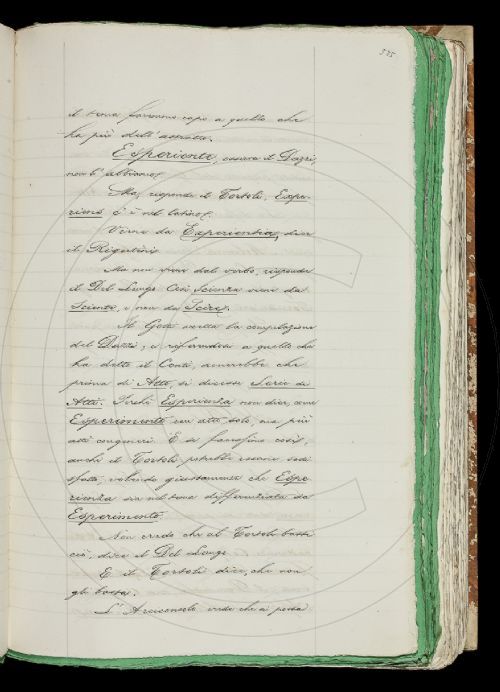 525
il tema faranno capo a quello che
ha più dell'astratto.
Esperiente, osserva il Dazzi,
non l'abbiamo?
Ma, risponde il Tortoli, Expe-
riens c'è nel latino?
Viene da Experientia, dice
il Rigutini.
Ma non viene dal verbo, risponde
il Del Lungo. Così Scienza viene da
Sciente, e non da Scire.
Al Gotti la compilazione
del Dazzi; e riferendosi a quello che
ha detto il Conti, amerebbe che
prima di Atti, si dicesse Serie di
Atti. Perchè Esperienza non dice, come
Esperimento un atto solo, ma più
atti congeneri. E se facessimo così,
anche il Tortoli potrebbe essere sodi-
sfatto, volendo giustamente che Espe-
rienza sia nel tema differenziata da
Esperimento.
Non credo che al Tortoli basti
ciò, dice il Del Lungo.
E il Tortoli dice, che non
gli basta.
L'Arciconsolo crede che si possa